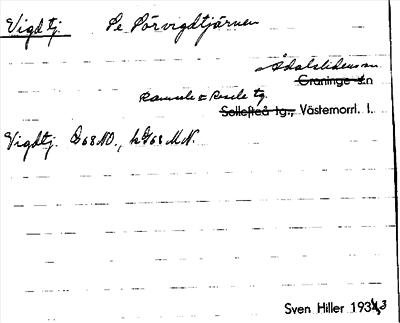 Vigdtj. Se Sörvigdtjärnen
Ådalslidens sn
Graninge sn
Ramsele o Resele tg.
Sollefteå tg., Västernorrl. l.
Vigdtj. G68NO., kG68MN.
Sven Hiller 1943